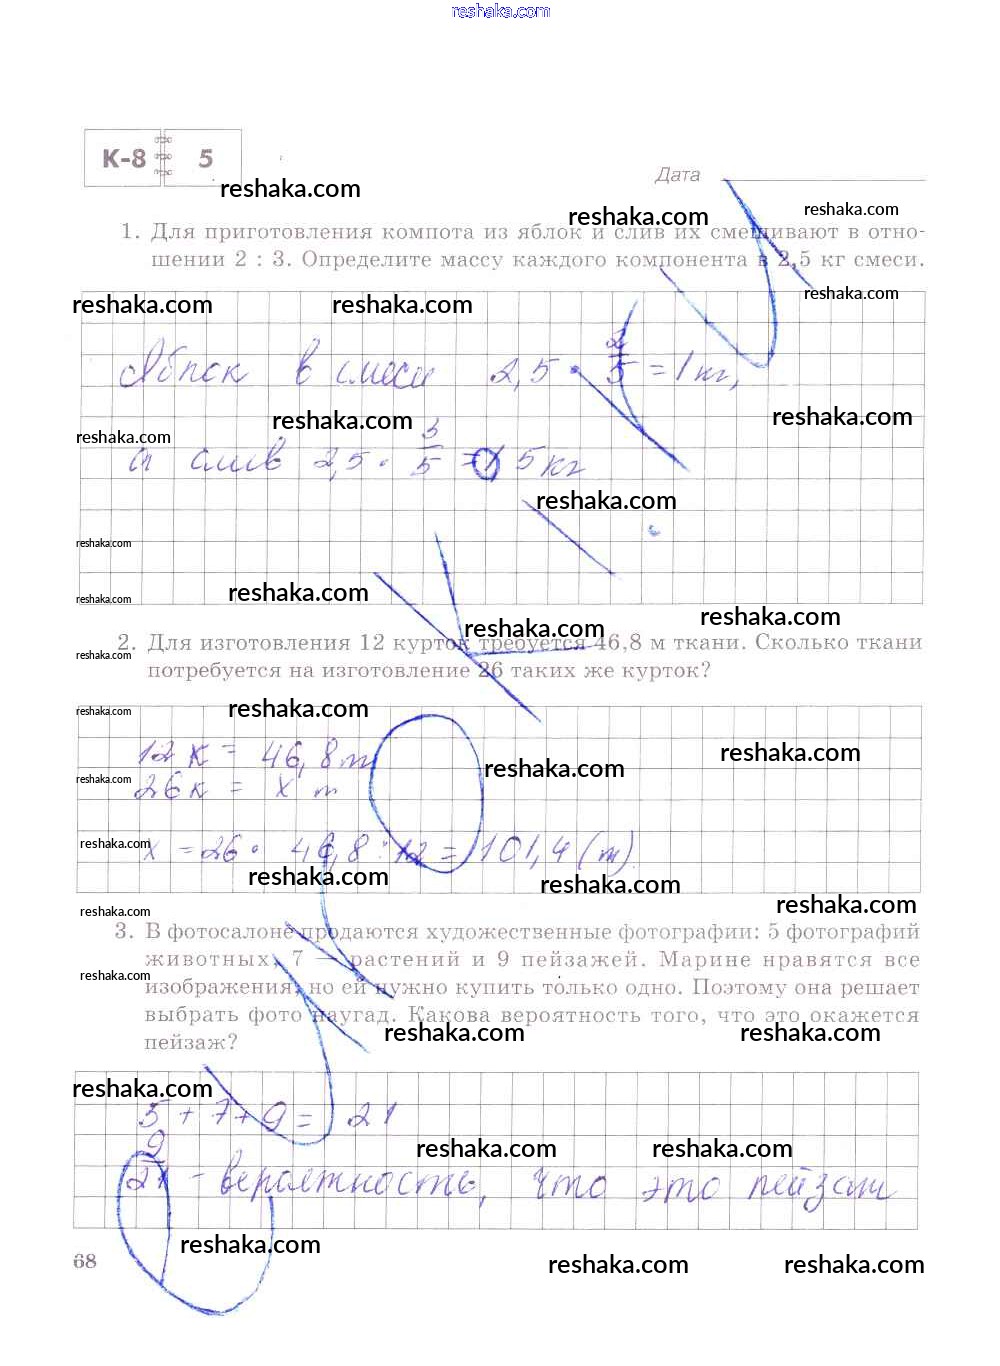 reshaka.com
К-8 5
reshaka.com
Дата
reshaka.com reshaka.com
1. Для приготовления компота из яблок и слив их смешивают в отно-
шении 2 : 3. Определите массу каждого компонента в 2,5 кг смеси.
reshaka.com reshaka.com reshaka.com
Яблок в смеси 2,5 · 2/5 = 1 кг,
reshaka.com reshaka.com reshaka.com
а слив 2,5 · 3/5 = 1,5 кг
reshaka.com
reshaka.com
reshaka.com reshaka.com
reshaka.com reshaka.com
2. Для изготовления 12 курток требуется 46,8 м ткани. Сколько ткани
reshaka.com
потребуется на изготовление 26 таких же курток?
reshaka.com reshaka.com
12 к = 46,8 m
reshaka.com reshaka.com
26 к = x m
reshaka.com
x = 26 · 46,8 : 12 = 101,4 (m)
reshaka.com
reshaka.com reshaka.com
reshaka.com reshaka.com
3. В фотосалоне продаются художественные фотографии: 5 фотографий
животных, 7 — растений и 9 пейзажей. Марине нравятся все
reshaka.com
изображения, но ей нужно купить только одно. Поэтому она решает
выбрать фото наугад. Какова вероятность того, что это окажется
reshaka.com reshaka.com reshaka.com
пейзаж?
reshaka.com
5 + 7 + 9 = 21
reshaka.com reshaka.com
9/21 - вероятность, что это пейзаж
reshaka.com
68
reshaka.com reshaka.com